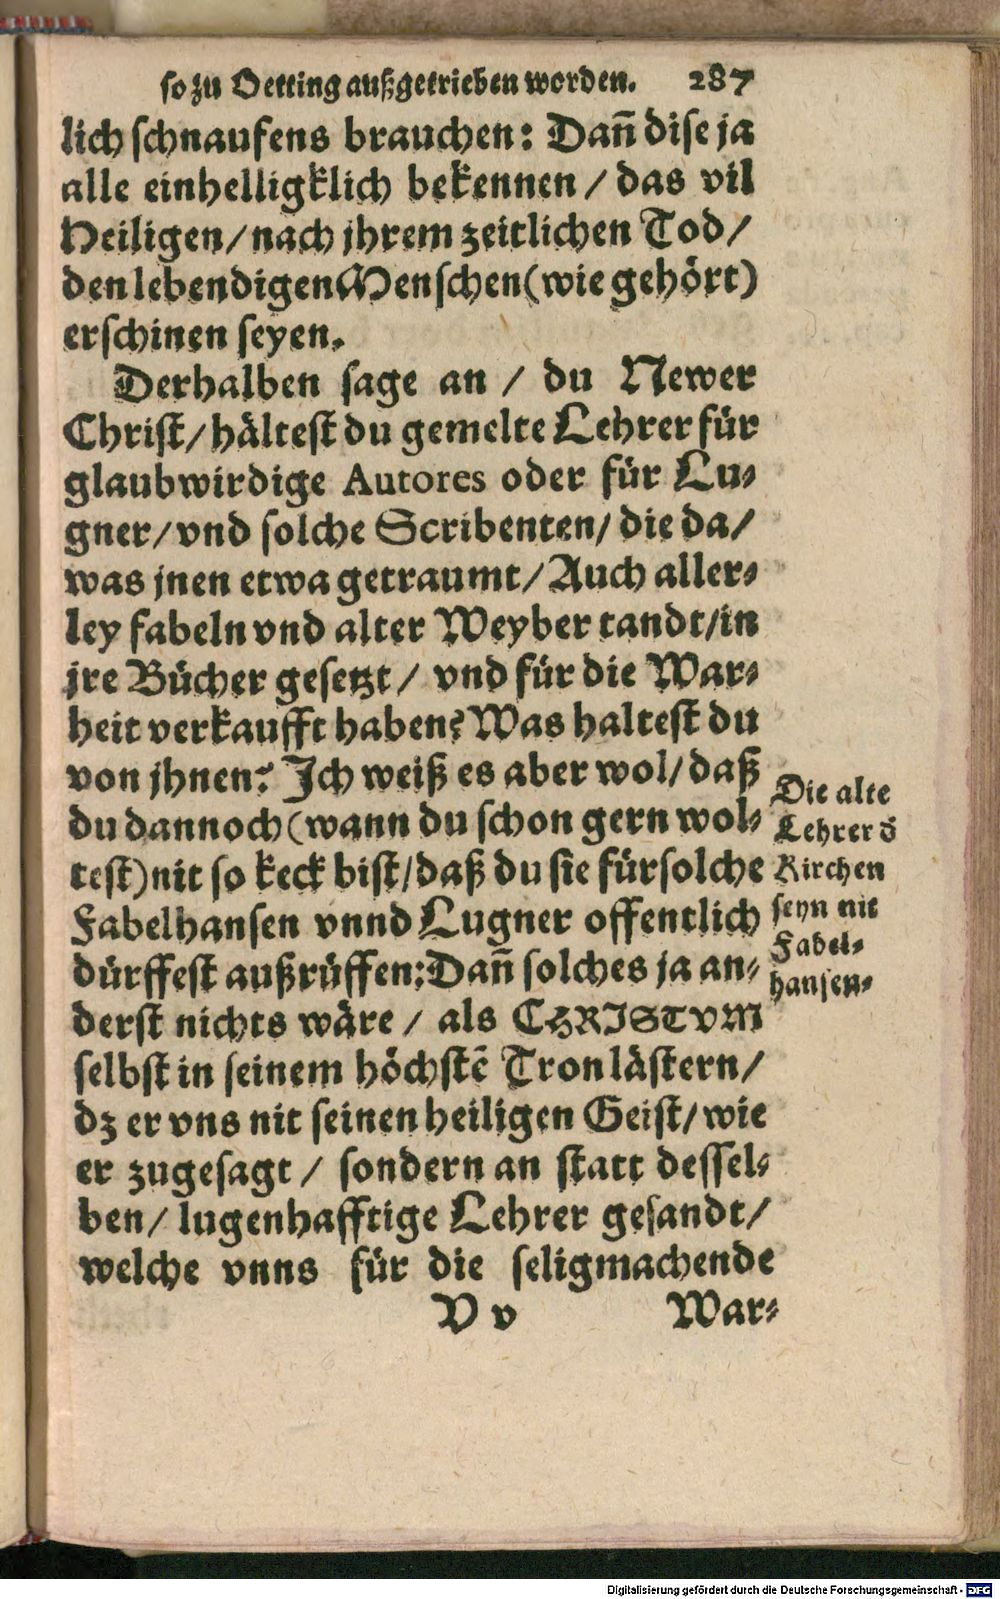 so zu Oetting außgetrieben worden. 287
lich schnaufens brauchen: Dañ dise ja
alle einhelligklich bekennen / das vil
Heiligen / nach jhrem zeitlichen Tod /
den lebendigen Menschen (wie gehört)
erschinen seyen.
Derhalben sage an / du Newer
Christ / hältest du gemelte Lehrer für
glaubwirdige Autores oder für Lu-
gner / vnd solche Scribenten / die da /
was jnen etwa getraumt / Auch aller-
ley fabeln vnd alter Weyber tandt / in
jre Bücher gesetzt / vnd für die War-
heit verkaufft haben? Was haltest du
von jhnen? Ich weiß es aber wol / daß
du dannoch (wann du schon gern wol-
test) nit so keck bist / daß du sie fürsolche
Fabelhansen vnnd Lugner offentlich
dürffest außrüffen: Dañ solches ja an-
derst nichts wäre / als CHRISTVM
selbst in seinem höchstē Tron lästern /
dz er vns nit seinen heiligen Geist / wie
er zugesagt / sondern an statt dessel-
ben / lugenhafftige Lehrer gesandt /
welche vnns für die seligmachende
V v War-
Die alte
Lehrer d
Kirchen
seyn nit
Fabel-
hansen.
Digitalisierung gefördert durch die Deutsche Forschungsgemeinschaft - DFG